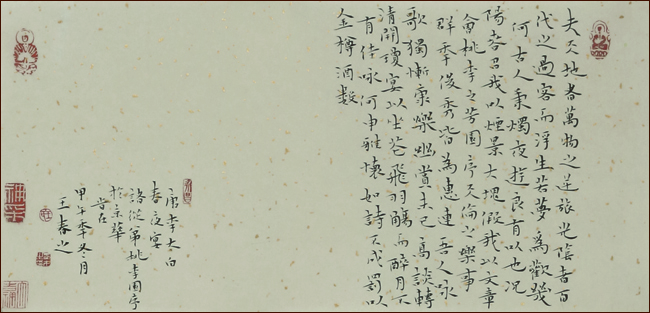 夫天地者萬物之逆旅光陰者百
代之過客而浮生若夢為歡幾
何古人秉燭夜遊良有以也況
陽春召我以煙景大塊假我以文章
會桃李之芳園序天倫之樂事
群季俊秀皆為惠連吾人詠
歌獨慚康樂幽賞未已高談轉
清開瓊宴以坐花飛羽觴而醉月不
有佳咏何申雅懷如詩不成罰以
金樽酒數
唐李太白
春夜宴
諸從弟桃李園序
於京華
甲午年冬月
王春